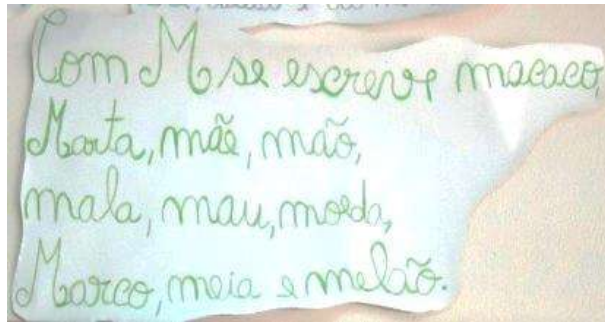 Com M se escreve macaco,
Marta, mãe, mão,
mala, mau, moeda,
Marco, meia e melão.